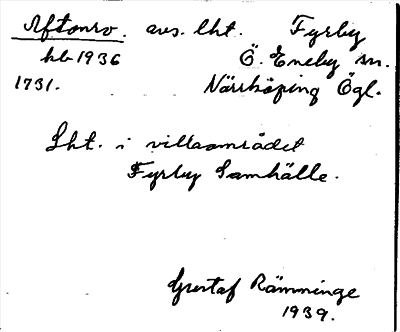 Aftonro. avs. lht. Fyrby
kb 1936 Ö. Eneby sn.
1731. Norrköping Ögl.
Lht. i villaområdet
Fyrby Samhälle.
Gustaf Rämminge
1939.